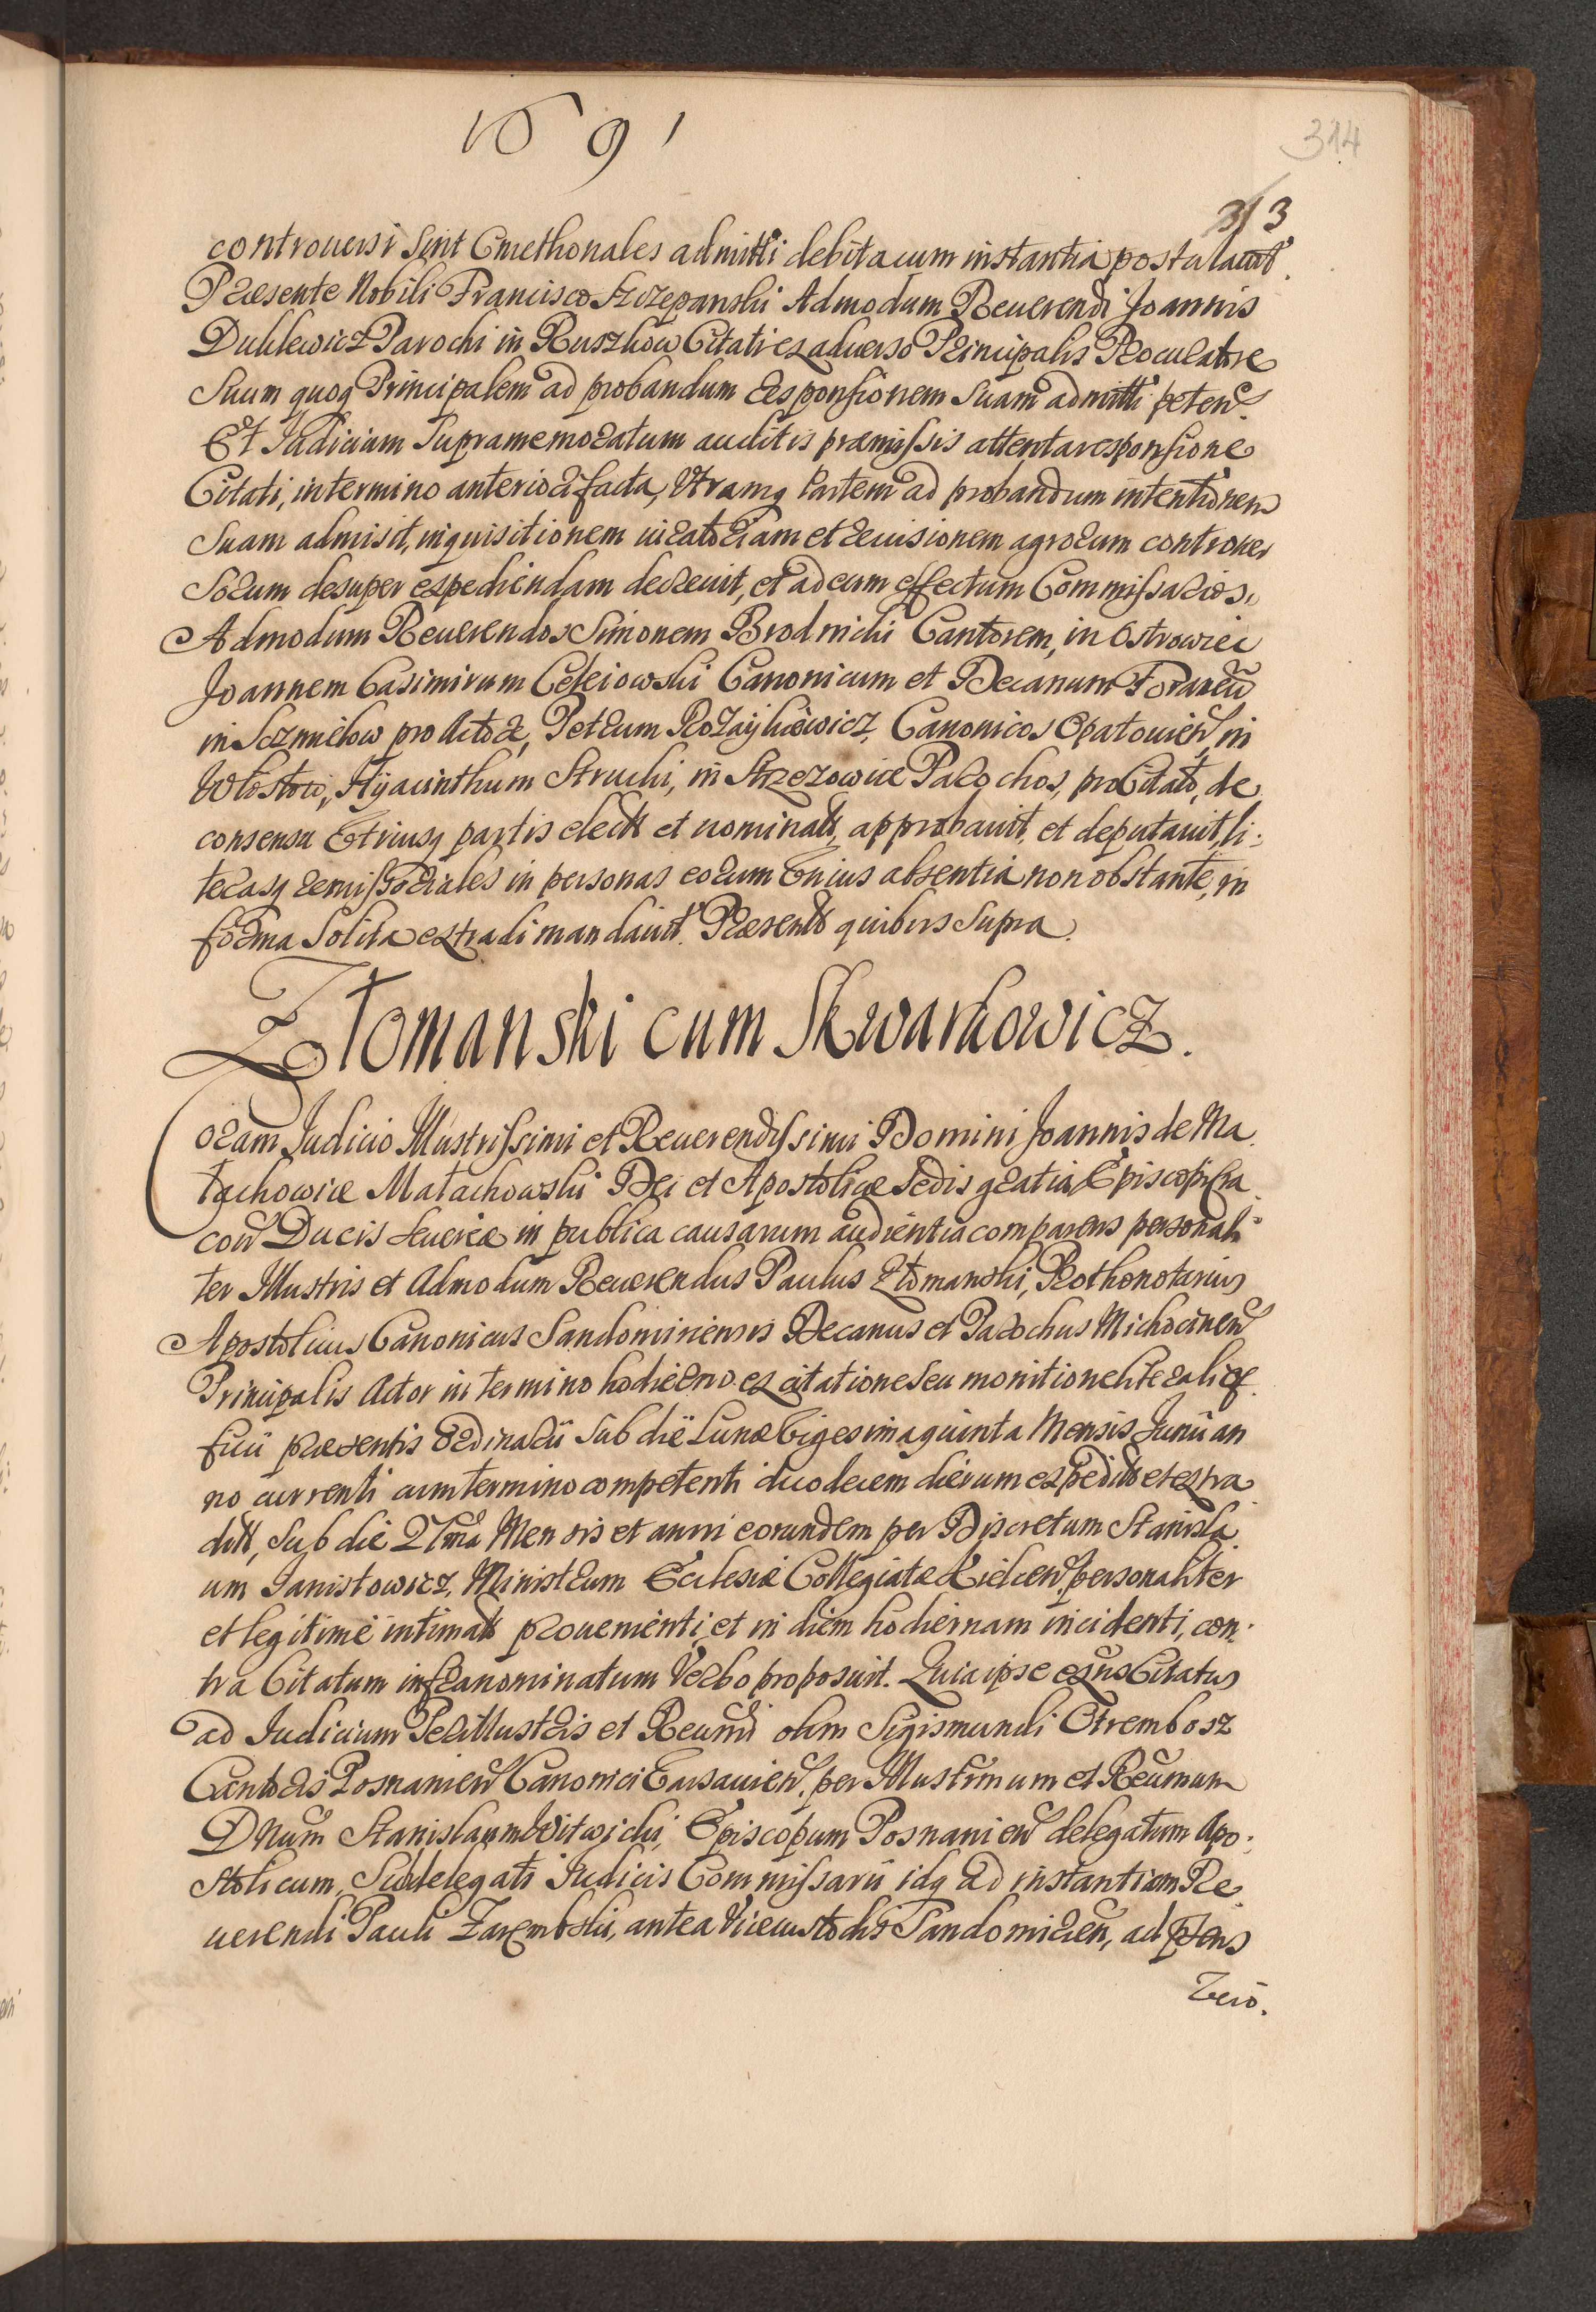 1691
314
313
controuersi sint Cmethonales admitti debita cum instantia postulauit.
Praesente Nobili Francisco Szczepanski Admodum Reuerendi Joannis
Duklewicz Parochi in Ruszkow Citati ex aduerso Principalis Procuratore
Suum quoq Principalem ad probandum Responsionem Suam admitti peten.
Et Iudicium Supramemoratum auditis praemissis attenta responsione
Citati, in termino anteriori facta, Vtramq Partem ad probandum intentionem
Suam admisit, inquisitionem iuratoriam et reuisionem agrorum controuer
sorum desuper expediendam decreuit, et ad eum effectum Commissarios,
Admodum Reuerendos Simonem Brodnicki Cantorem, in Ostrowiec
Joannem Casimirum Celeiowski Canonicum et Decanum Foraneū
in Szczmielow pro Actore, Petrum Rozaykiewicz, Canonicos Opatouien in
Wlostow, Hyacinthum Strucki, in Strzezowice Parochos, pro Citato, de
consensu Vtriusq partis electos et nominatos, approbauit, et deputauit, li:
terasq remissoriales in personas eorum Vnius absentia non obstante, in
forma Solita extradi mandauit. Praesentibus quibus Supra.
Złomanski cum Skwarkowicz.
Coram Judicio Illustrissimi et Reuerendissimi Domini Joannis de Ma
łachowice Małachowski Dei et Apostolicae Sedis gratia Episcopi Cra
cou Ducis Seueriae in publica causarum audientia comparens personali
ter Illustris et Admodum Reuerendus Paulus Złomanski, Prothonotarius
Apostolicus Canonicus Sandomiriensis Decanus et Parochus Michocinen
Principalis Actor in termino hodierno ex citatione seu monitione literali of
ficii praesentis Ordinarii Sub die Lunae Vigesima quinta Mensis Junii an
no currenti cum termino competenti duodecem dierum expedito et extra
dito, Sub die 27ma Mensis et anni eorundem per Discretum Stanisla
um Janistowicz, Ministrum Ecclesiae Collegiatae Kielcen personaliter
et legitime intimato proueniente, et in diem hodiernam incidenti, con:
tra Citatum infranominatum Verbo proposuit. Quia ipse exns Citatus
ad Judicium Perillustris et Reundi olim Sigismundi Otrembosz
Cantoris Posnanien Canonici Varsauien, per Illustrimum et Reumum
Dnum Stanislaum Witwicki, Episcopum Posnanien delegatum Apo:
stolicum, Subdelegati Iudicis Commissarii idq ad instantiam Re
uerendi Pauli Zarembski, antea Vicecustodis Sandomirien, ad pns
Vero.